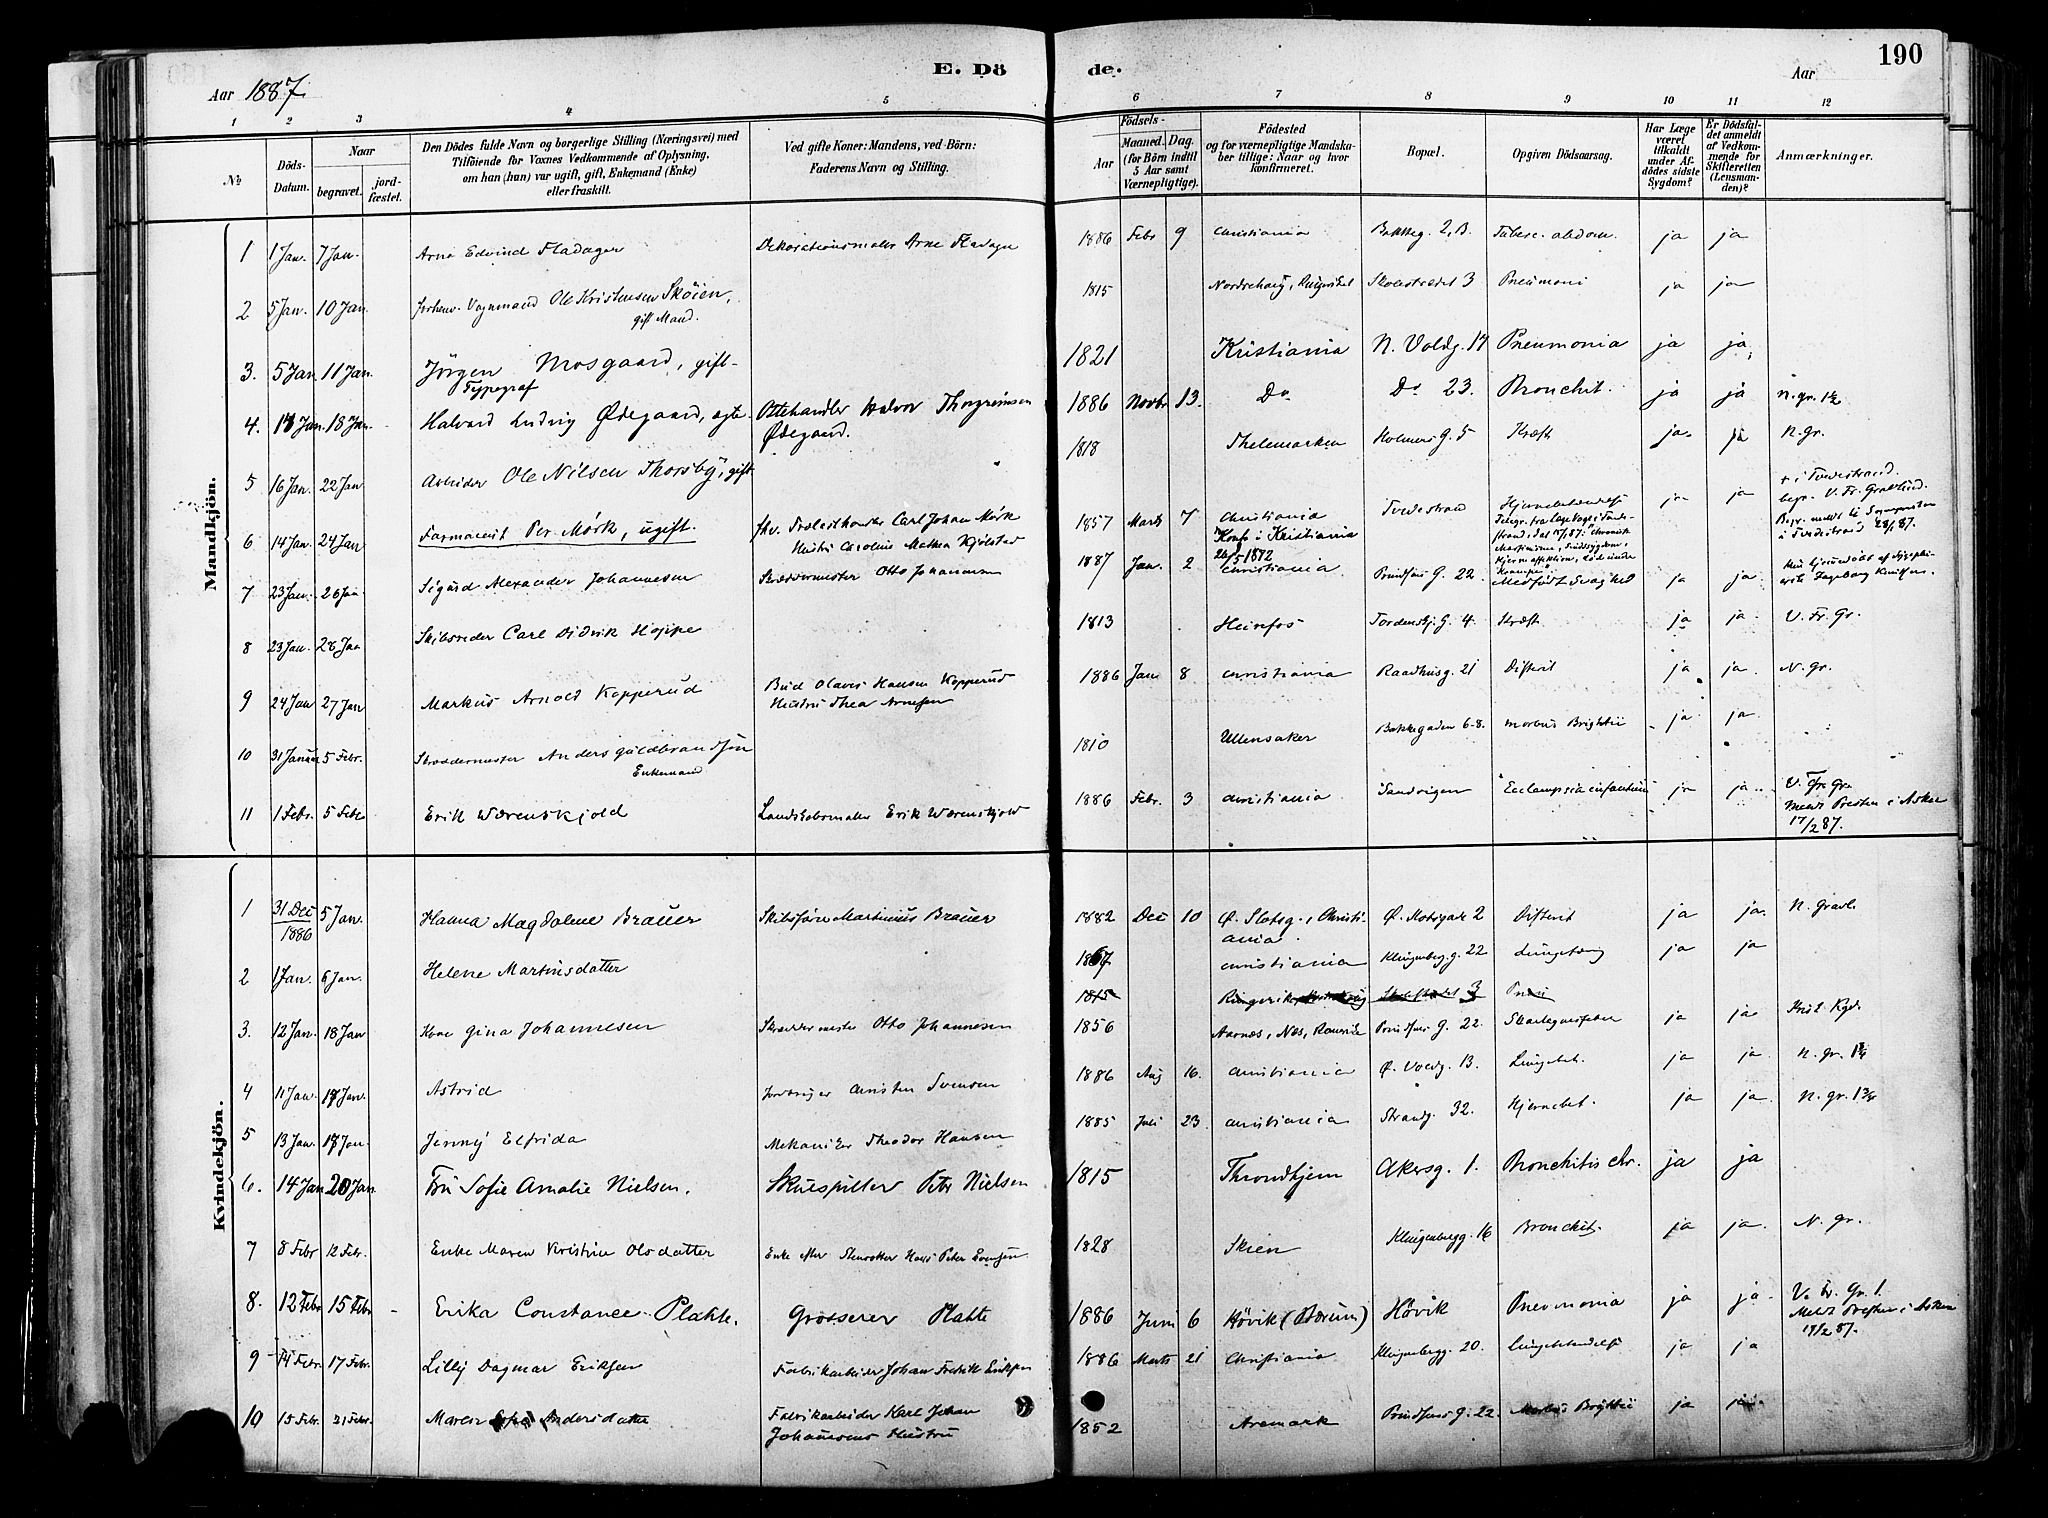 E. Dö de. 190
Aar 1887. Aar
1 2 3 4 5 6 7 8 9 10 11 12
№
Döds-Datum.
Naar
begravet.
jord-fæstet.
Den Dödes fulde Navn og borgerlige Stilling (Næringsvei) med
Tilföiende for Voxnes Vedkommende af Oplysning,
om han (hun) var ugift, gift, Enkemand (Enke)
eller fraskilt.
Ved gifte Koner: Mandens, ved Börn:
Faderens Navn og Stilling.
Födsels-
Aar
Maaned. Dag.
(for Börn indtil
5 Aar samt
Værnepligtige).
Födested
og for værnepligtige Mandska-
ber tillige: Naar og hvor
konfirmeret.
Bopæl.
Opgiven Dödsaarsag.
Har Læge
været
tilkaldt
under Af-
dödes sidste
Sygdom?
Er Dödsfal-
det anmeldt
af Vedkom-
mende for
Skifteretten
(Lensman-
den)?
Anmærkninger.
Mandkjön.
1 1 Jan. 7 Jan. Arne Edvind Fladager Dekorationsmaler Arne Fladager 1886 Febr 9 Christiania Bakkeg. 2, B. Tuberc. abdom. ja ja
2 5 Jan. 10 Jan. Forhenv. Vognmand Ole Kristensen Sköien, 1815 Nordrehaug, Ringeriket Skolestrædet 3 Pneumoni ja ja
gift Mand.
3. 5 Jan 11 Jan. Jörgen Mosgaard, gift 1821 Kristiania N. Voldg. 17 Pneumonia ja ja
Typograf
4. 14 Jan. 18 Jan. Halvard Ludvig Ødegaard, ægte Ottehandler Halvor Thorgrimsen 1886 Novbr 13. Do Do 23. Bronchit. ja ja N. gr. 1/2
Ødegaard.
5 16 Jan. 22 Jan Arbeider Ole Nilsen Thorsby, gift 1818 Thelemarken Holmens G. 5 Kræft ja ja N. gr.
6 14 Jan. 24 Jan Farmaceut Per Mörk, ugift. fhv. Trælasthandler Carl Johan Mörk 1857 Marts 7 Christiania Tvedestrand Hjernebetændelse ja ja + i Tvedestrand.
Hustru Caroline Mathea Kjölstad Konf. i Kristiania
begr. V. Fr. Gravlund.
26/5 1872
i Tvedestrand 28/1 87.
7 23 Jan. 26 Jan Sigurd Alexander Johannesen Skræddermester Otto Johannesen 1887 Jan. 2 Christiania Prindsens G. 22. Medfödt Svaghed ja ja
8 23 Jan. 28 Jan Skibsreder Carl Didrik Hoppe 1813 Heinfos Tordenskj. G. 4. Kræft ja ja V. Fr. Gr.
9 24 Jan 27 Jan Markus Arnold Kopperud Bud Olaves Hansen Kopperud 1886 Jan 8 Christiania Raadhusg. 21 Difterit ja ja N. gr.
Hustru Thea Arnesen
10 31 Januar 5 Febr. Skræddermester Anders Guldbrandsen 1810 Ullensaker Bakkegaden 6-8. Morbus Brightii ja ja
Enkemand
11 1 Febr. 5 Febr Erik Wærenskjold Landskabsmaler Erik Wærenskjold 1886 Febr. 3 Christiania Sandvigen Eclampsia infantum ja ja V. Fr. Gr.
Meldt Presten i Asker
17/2 87.
Kvindekjön.
1 31 Dec 1886 5 Jan. Hanna Magdalene Brauer Skibsförer Martinius Brauer 1882 Dec 10 Ø. Slotsg., Christi-ania. Difterit ja ja N. gravl.
2 1 Jan. 6 Jan. Helene Martinsdatter 1867 Christiania Klingenbergg. 22 ja ja
1815 Skolestrædet 3
3. 12 Jan 18 Jan Kone Gina Johannesen Skræddermester Otto Johannesen 1856 Aarnes, Nes, Romerike Prindsens G. 22. Skarlagensfeber ja ja Krist. Kgd.
4 11 Jan. 17 Jan. Astrid Christen Svensen 1886 Aug 16. Christiania Ø. Voldg. 13. Lungebet. ja ja N. gr.
5 13 Jan. 17 Jan. Jenny Elfrida Mekaniker Theodor Hansen 1885 Juli 23 Christiania Strandg. 32. Hjernebet. ja ja N. gr.
6. 14 Jan 20 Jan. Fru Sofie Amalie Nielsen. Skuespiller Peter Nielsen 1815 Throndhjem Akersg. 1. Bronchitis chr. ja ja
7 8 Febr 12 Febr. Enke Maren Kristine Olsdatter Enke efter Hans Peter Svensen 1828 Skien Klingenbergg. 16 Bronchit. ja ja N. gr.
8. 12 Febr 15 Febr Erika Constance Plahte. Grosserer Plahte 1886 Juni 6 Hövik (Bærum) Hövik Pneumonia ja ja V. Fr. Gr. 1.
Meldt Presten i Asker
19/2 87.
9 14 Febr. 17 Febr. Lilly Dagmar Eriksen Fabrikarbeider Johan Fredrik Eriksen 1886 Marts 21 Christiania Klingenbergg. 20. Lungebetændelse ja ja
10 15 Febr. 21 Febr. Maren Sofie Andersdatter Fabrikarbeider Karl Johan 1852 Aremark Prindsens G. 22. Morbus Brightii ja ja
Johansens Hustru